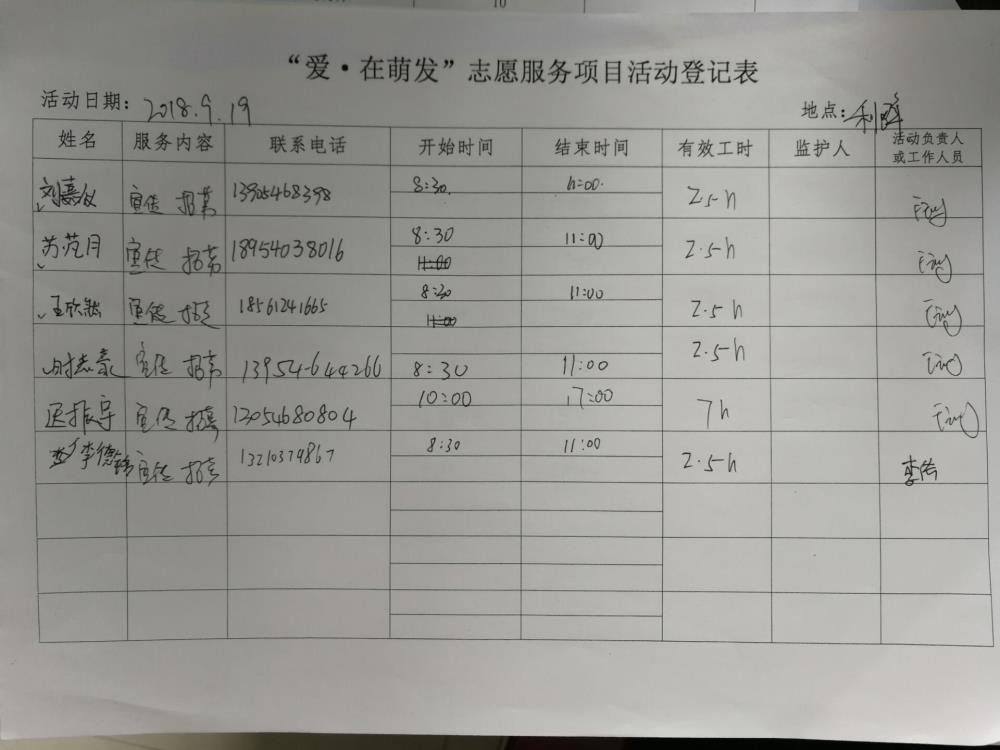 10
“爱·在萌发”志愿服务项目活动登记表
活动日期: 2018.9.19 地点:
姓名 服务内容 联系电话 开始时间 结束时间 有效工时 监护人 活动负责人或工作人员
刘嘉仪 宣传 招募 13905468398 8:30. 11:00. 2.5h
苏范月 宣传 招募 18954038016 8:30 11:00 2.5h
11:00
王欣 宣传 招募 18561241665 8:30 11:00 2.5h
11:00
时志豪 宣传 招募 13954644266 8:30 11:00 2.5h
振宇 宣传 招募 13054680804 10:00 17:00 7h
李德 宣传 招募 13210374867 8:30 11:00 2.5h